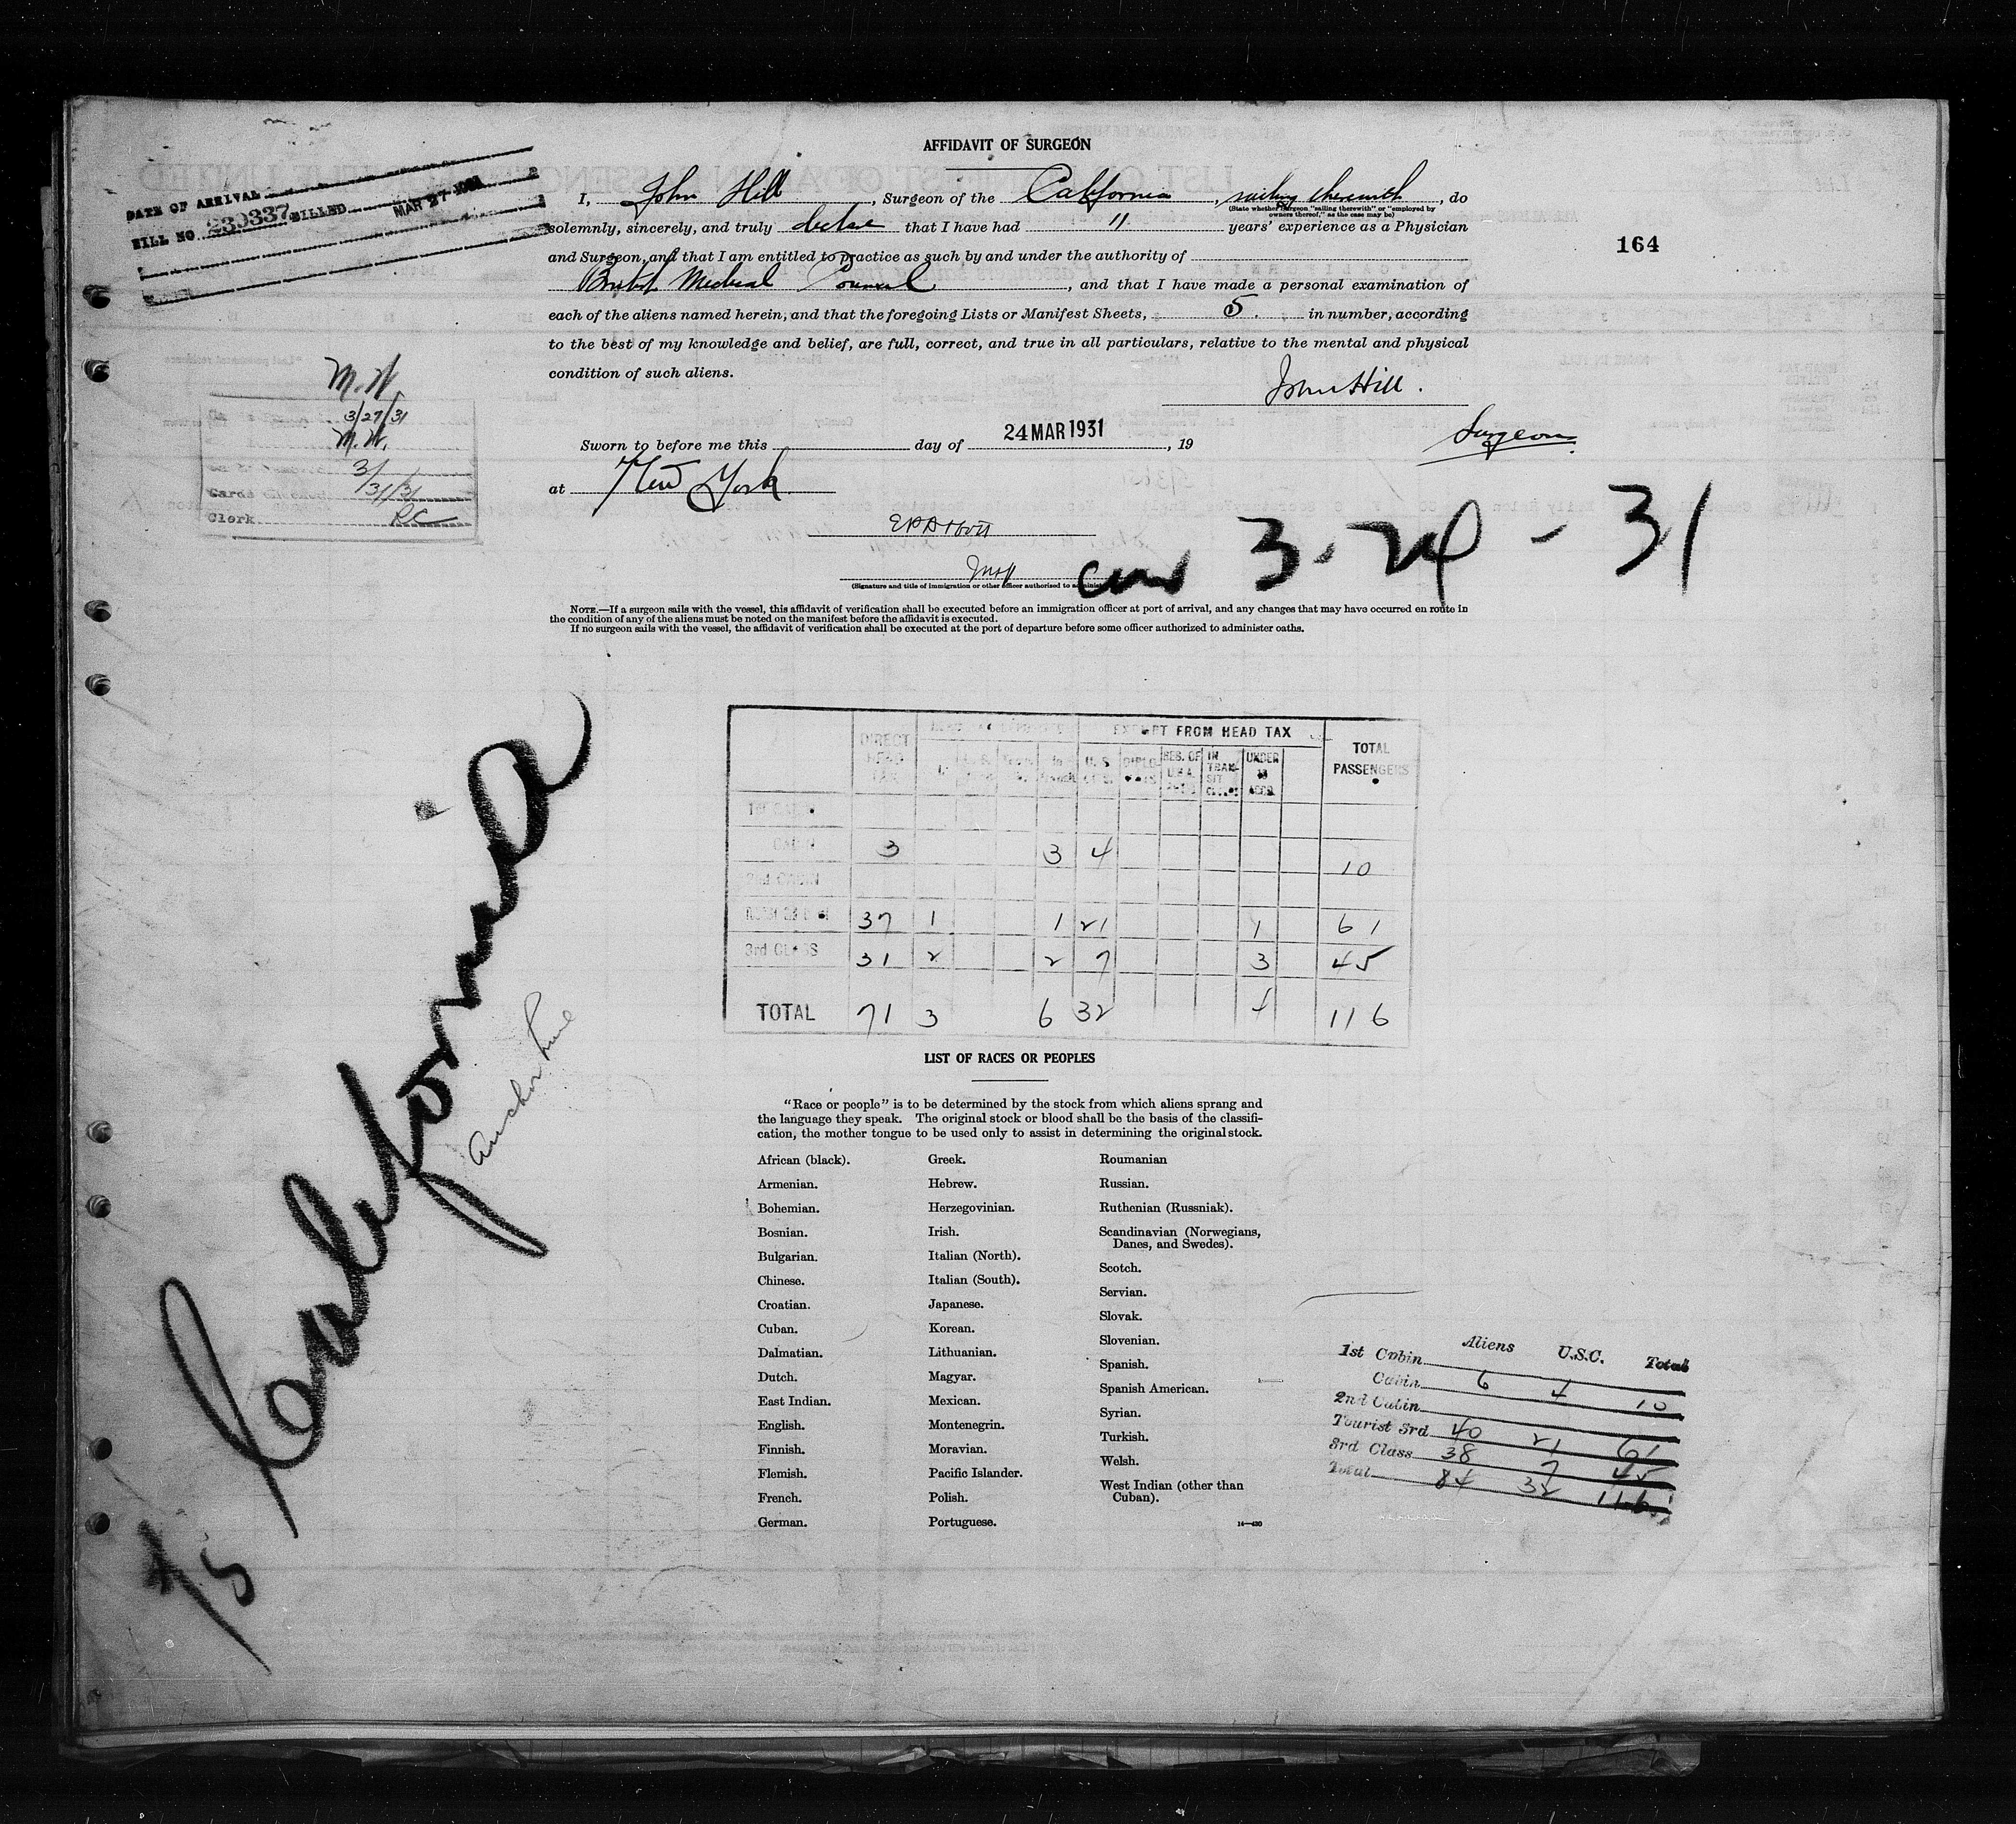 AFFIDAVIT OF SURGEON
I, John Hill, Surgeon of the California, sailing therewith, do
(State whether Surgeon "sailing therewith" or "employed by
owners thereof," as the case may be)
solemnly, sincerely, and truly declare that I have had 11 years' experience as a Physician
and Surgeon, and that I am entitled to practice as such by and under the authority of
British Medical Council, and that I have made a personal examination of
each of the aliens named herein, and that the foregoing Lists or Manifest Sheets, 5. in number, according
to the best of my knowledge and belief, are full, correct, and true in all particulars, relative to the mental and physical
condition of such aliens.
John Hill.
Surgeon.
Sworn to before me this day of 24 MAR 1931, 19
at New York.
(Signature and title of immigration or other officer authorized to
3-24-31
NOTE.—If a surgeon sails with the vessel, this affidavit of verification shall be executed before an immigration officer at port of arrival, and any changes that may have occurred en route in
the condition of any of the aliens must be noted on the manifest before the affidavit is executed.
If no surgeon sails with the vessel, the affidavit of verification shall be executed at the port of departure before some officer authorized to administer oaths.
DATE OF ARRIVAL
BILL NO 239337 BILLED MAR 27 1931
164
M.W.
3/27/31
M.W.
3/31/31
Cards Checked
Clerk RC
California
Anchor Line
75
DIRECT HEAD TAX
EXEMPT FROM HEAD TAX
TOTAL PASSENGERS
U.S. DIPLO IN TRANSIT UNDER
CABIN 3 3 4 10
2nd CABIN
37 1 1 21 1 61
3rd CLASS 31 2 2 7 3 45
TOTAL 71 3 6 32 4 116
LIST OF RACES OR PEOPLES
"Race or people" is to be determined by the stock from which aliens sprang and
the language they speak. The original stock or blood shall be the basis of the classifi-
cation, the mother tongue to be used only to assist in determining the original stock.
African (black).
Armenian.
Bohemian.
Bosnian.
Bulgarian.
Chinese.
Croatian.
Cuban.
Dalmatian.
Dutch.
East Indian.
English.
Finnish.
Flemish.
French.
German.
Greek.
Hebrew.
Herzegovinian.
Irish.
Italian (North).
Italian (South).
Japanese.
Korean.
Lithuanian.
Magyar.
Mexican.
Montenegrin.
Moravian.
Pacific Islander.
Polish.
Portuguese.
Roumanian
Russian.
Ruthenian (Russniak).
Scandinavian (Norwegians,
Danes, and Swedes).
Scotch.
Servian.
Slovak.
Slovenian.
Spanish.
Spanish American.
Syrian.
Turkish.
Welsh.
West Indian (other than
Cuban).
Aliens U.S.C. Total
1st Cabin
Cabin 6 4 10
2nd Cabin
Tourist 3rd 40 21 61
3rd Class 38 7 45
Total 84 32 116